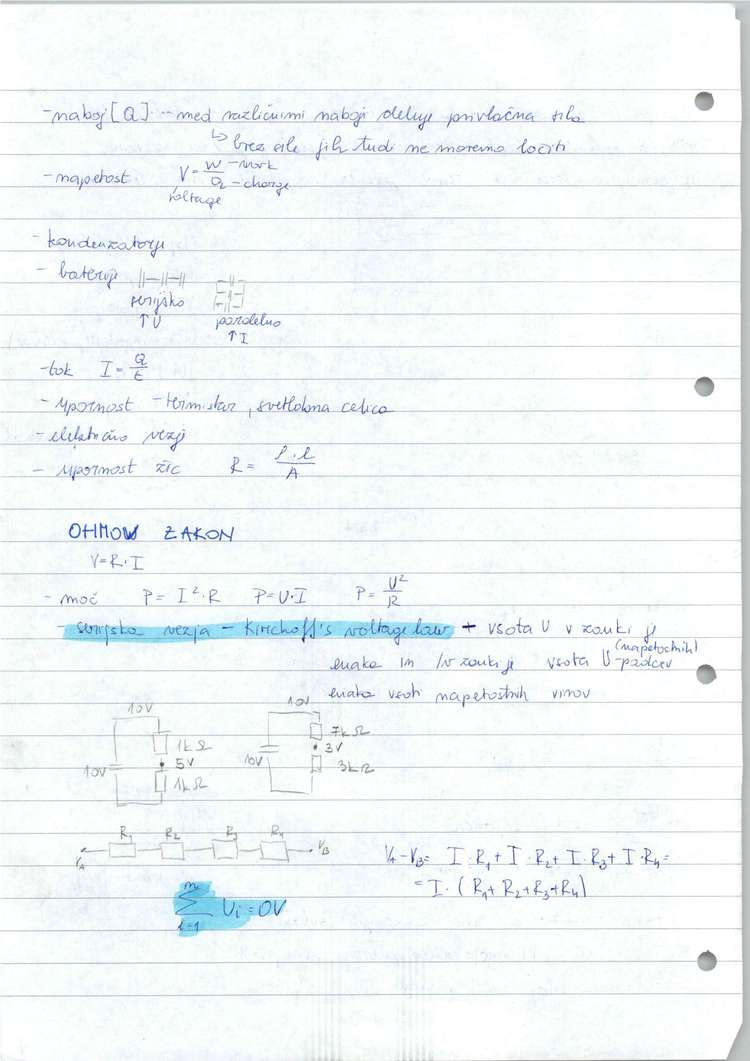 - naboj [Q] - med različnimi naboji deluje privlačna sila
↳ brez sile jih tudi ne moremo ločiti
- napetost V = W/Q - work - charge
voltage
- kondenzatorji
- baterije
serijsko paralelno
↑U ↑I
- tok I = Q/t
- upornost - termistor, svetlobna celica
- električno vezje
- upornost žic R = ρ·l/A
OHMOV ZAKON
V = R·I
- moč P = I²·R P = U·I P = U²/R
- serijska vezja - Kirchoff's voltage law + vsota U v zanki je
enaka in /v zanki je vsota U (napetostnih) -padcev
enaka vsoti napetostnih virov
10V 10V
1kΩ 7kΩ
10V 5V 10V 3V
1kΩ 3kΩ
V_A R₁ R₂ R₃ R₄ V_B
V_A - V_B = I·R₁ + I·R₂ + I·R₃ + I·R₄ =
= I·(R₁+R₂+R₃+R₄)
n ∑ i=1 Uᵢ = 0V